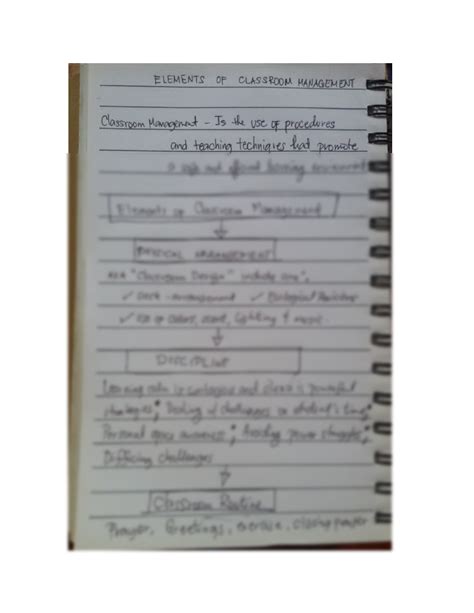 ELEMENTS OF CLASSROOM MANAGEMENT
Classroom Management - Is the use of procedures
and teaching techniques that promote
a safe and efficient learning environment
Elements of Classroom Management
PHYSICAL ARRANGEMENT
"Classroom Design" include
✓ Desk arrangement ✓
✓ Use of colors, scent, lighting & music
DISCIPLINE
Learning calm is contagious and silence is powerful
strategies; Dealing w/ challenges on student's time;
Personal space awareness; Avoiding power struggles;
Diffusing challenges
Classroom Routine
Prayer, Greetings, exercise, closing prayer